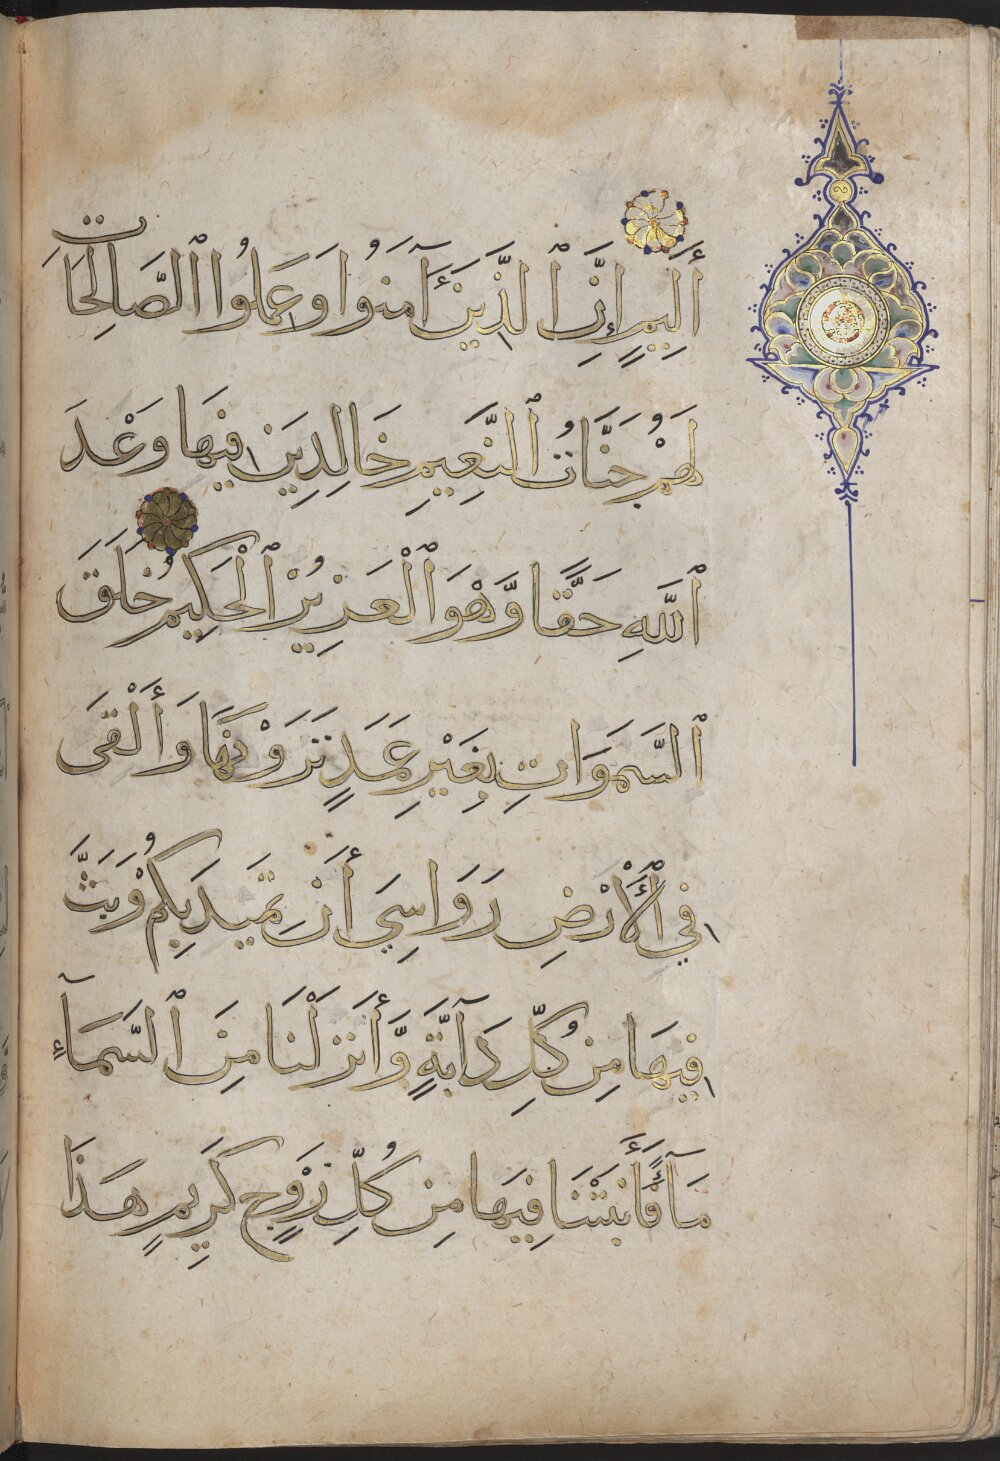 أَلِيمٍ إِنَّ ٱلَّذِينَ ءَآمَنُوا وَعَمِلُوا ٱلصَّالِحَاتِ
لَهُمْ جَنَّاتُ ٱلنَّعِيمِ خَالِدِينَ فِيهَا وَعْدَ
ٱللَّهِ حَقًّا وَّهْوَ ٱلْعَزِيزُ ٱلْحَكِيمُ خَلَقَ
ٱلسَّمَوَاتِ بِغَيْرِ عَمَدٍ تَرَوْنَهَا وَأَلْقَى
فِي ٱلْأَرْضِ رَوَاسِيَ أَن تَمِيدَ بِكُمْ وَبَثَّ
فِيهَا مِن كُلِّ دَآبَّةٍ وَّأَنزَلْنَا مِنَ ٱلسَّمَآءِ
مَآءً فَأَنبَتْنَا فِيهَا مِن كُلِّ زَوْجٍ كَرِيمٍ هَذَا